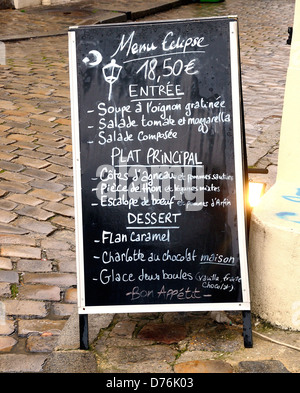 Menu Eclipse
18,50€
ENTRÉE
- Soupe à l'oignon gratinée
- Salade tomate et mozzarella
- Salade Composée
PLAT PRINCIPAL
- Côtes d'agneau et pommes sautées
- Pièce de thon et légumes
- Escalope de bœuf et
DESSERT
- Flan Caramel
- Charlotte au chocolat maison
- Glace deux boules (vanille, fraise
chocolat)
- Bon Appétit -
alamy
D76M03
www.alamy.com